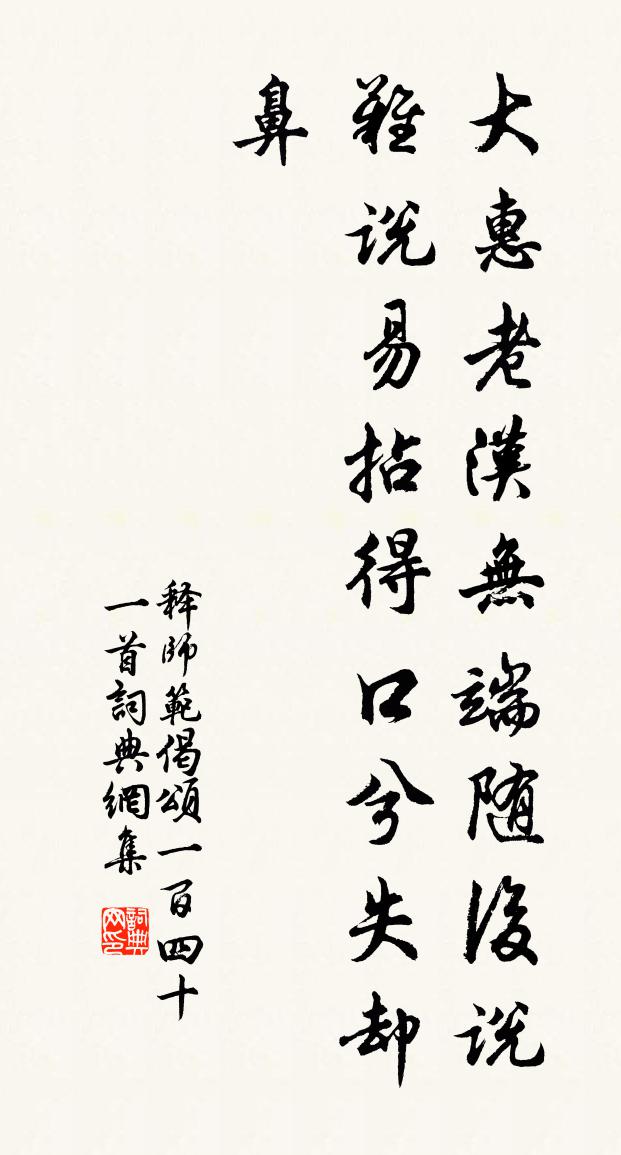 大惠老漢無端随後説
難説易拈得口兮失却
鼻
释師範偈頌一百四十
一首詞典網集
詞典网印